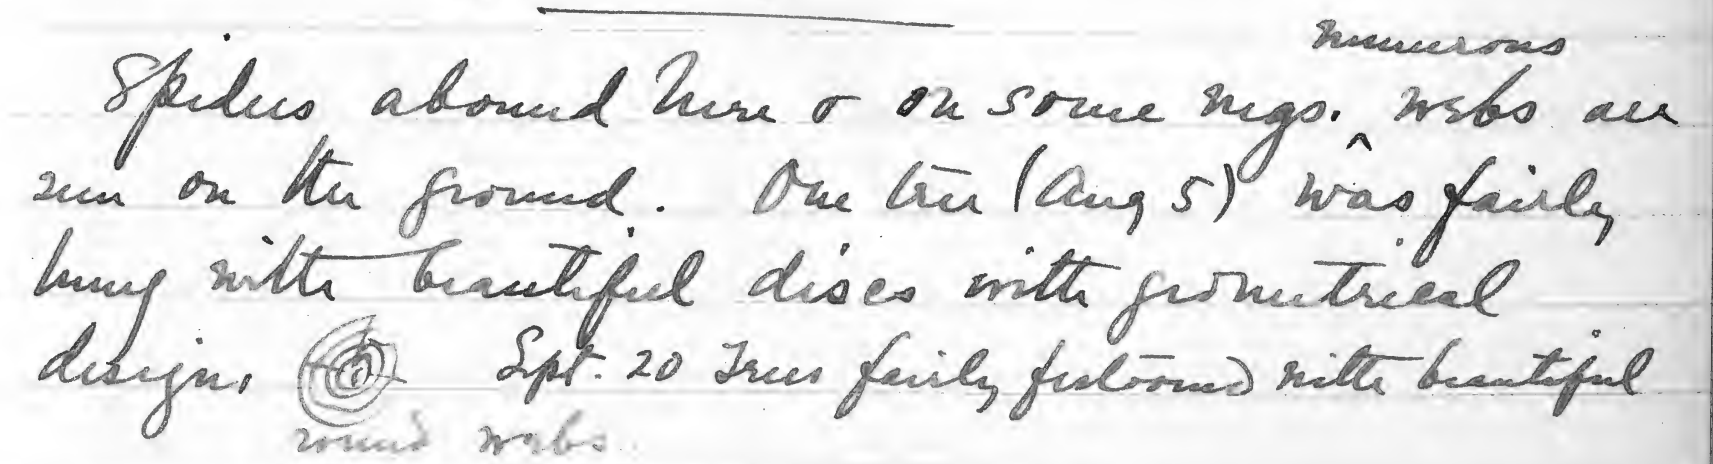 numerous
Spiders abound here & on some mgs. webs are
seen on the ground. One tree (Aug 5) was fairly
hung with beautiful discs with geometrical
design. Spt. 20 Trees fairly festooned with beautiful
round webs.